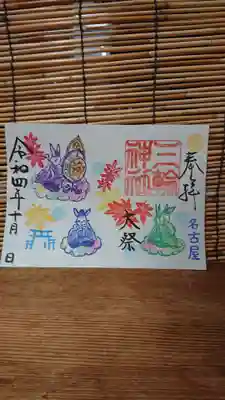 奉拝
名古屋
三輪
神社
大祭
令和四年十月 日